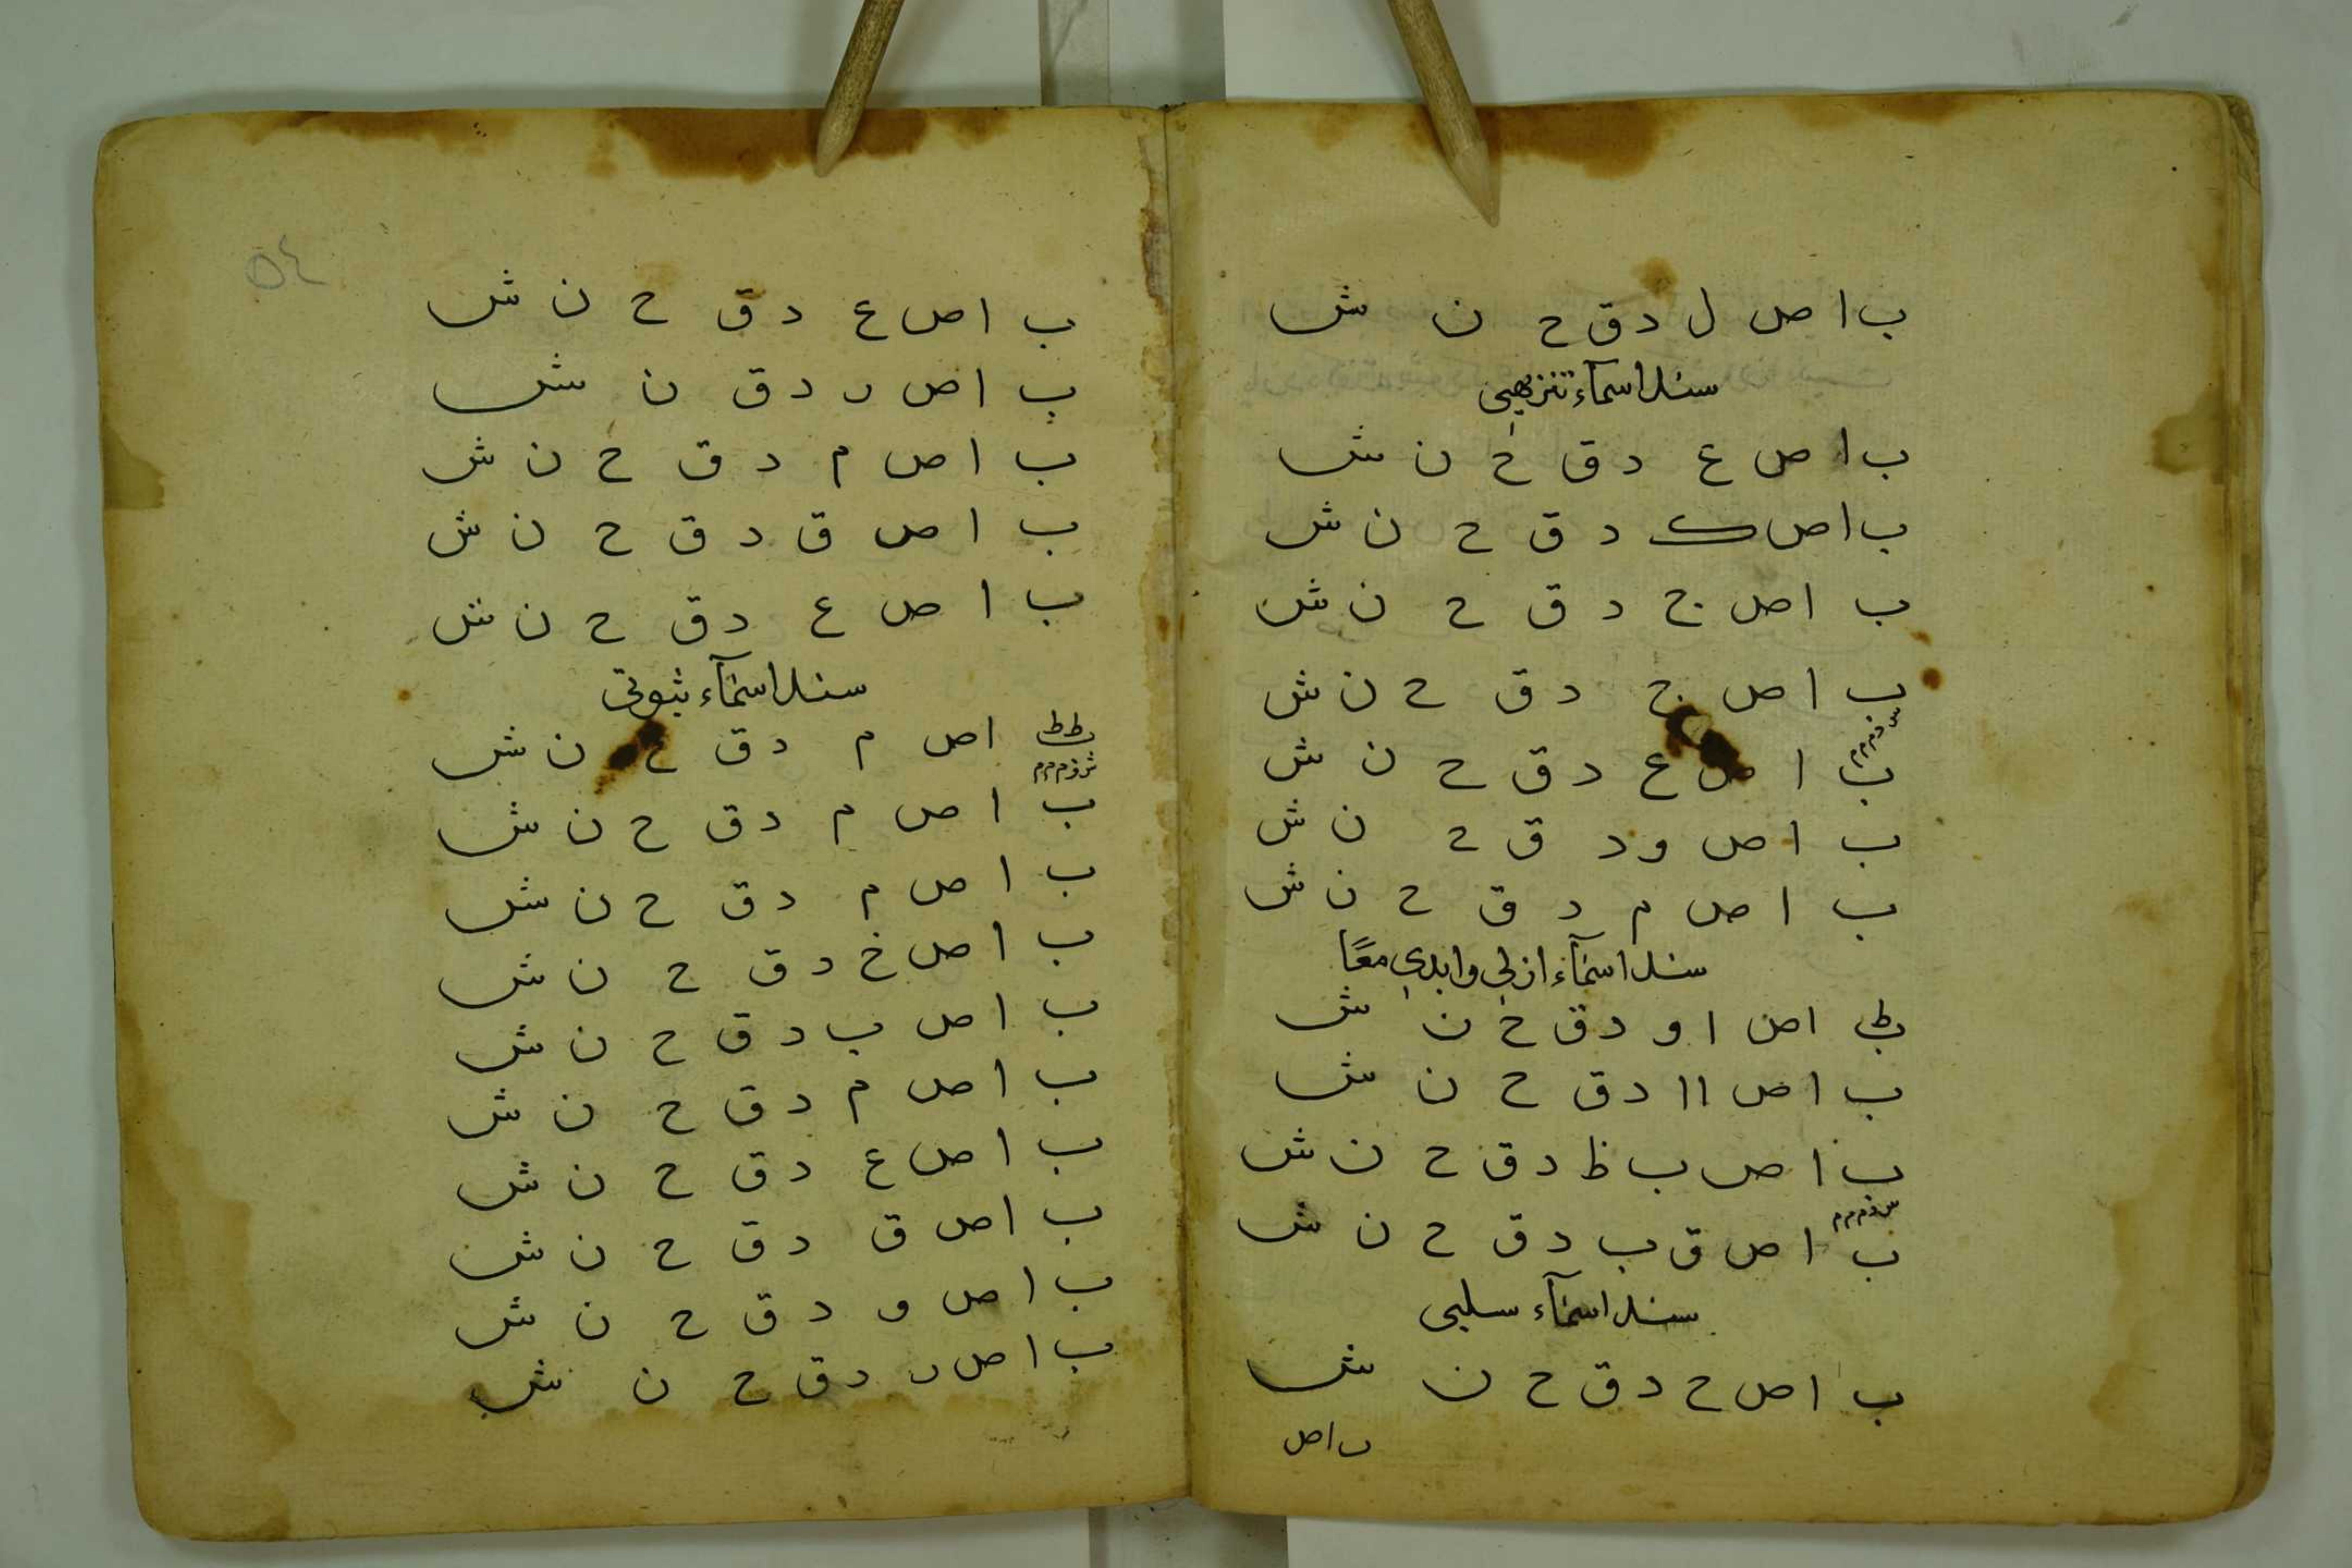 ب ا ص ل د ق ح ن ش
سند اسمآء تنزيهى
ب ا ص ع د ق ح ن ش
ب ا ص ك د ق ح ن ش
ب ا ص ج د ق ح ن ش
ب ا ص ج د ق ح ن ش
ب ا ص ع د ق ح ن ش
ب ا ص و د ق ح ن ش
ب ا ص م د ق ح ن ش
سند اسمآء ازلي وابدي معًا
ا ص ا و د ق ح ن ش
ب ا ص ا ا د ق ح ن ش
ب ا ص ب ظ د ق ح ن ش
ب ا ص ق ب د ق ح ن ش
سند اسمآء سلبى
ب ا ص ح د ق ح ن ش
ب ا ص
٥٤
ب ا ص ع د ق ح ن ش
ب ا ص ر د ق ن ش
ب ا ص م د ق ح ن ش
ب ا ص ق د ق ح ن ش
ب ا ص ع د ق ح ن ش
سند اسمآء ثبوتى
ا ص م د ق ح ن ش
ب ا ص م د ق ح ن ش
ب ا ص م د ق ح ن ش
ب ا ص خ د ق ح ن ش
ب ا ص ب د ق ح ن ش
ب ا ص م د ق ح ن ش
ب ا ص ع د ق ح ن ش
ب ا ص ق د ق ح ن ش
ب ا ص و د ق ح ن ش
ب ا ص ر د ق ح ن ش